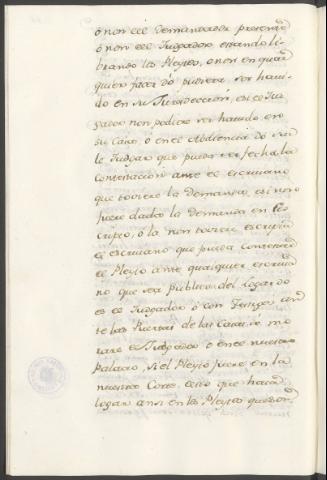 ó non el Demandador presente
ó non el Judgador estando li-
brando los Pleytos, o non en qual
quier
do en su Jurisdeccion, é si el Juz-
gador non podiere ser havido en
su Casa, ó en el Abdiencia do su-
le Judgar que pueda ser fecha la
Contestacion ante el escrivano
que toviere la demanda, é si non
fuere dada la demanda en Es-
cripto, ó la non toviere escripta
el escrivano que pueda Contestar
el Pleyto ante qualquier escriva-
no que sea publico del Logar do
es el Judgador ó con Testigos an-
te las Puertas de las Casas do mo-
rare el Judgador ó en el nuestro
Palacio, si el Pleyto fuere en la
nuestra Corte, esto que haya
logar ansi en los Pleytos que son